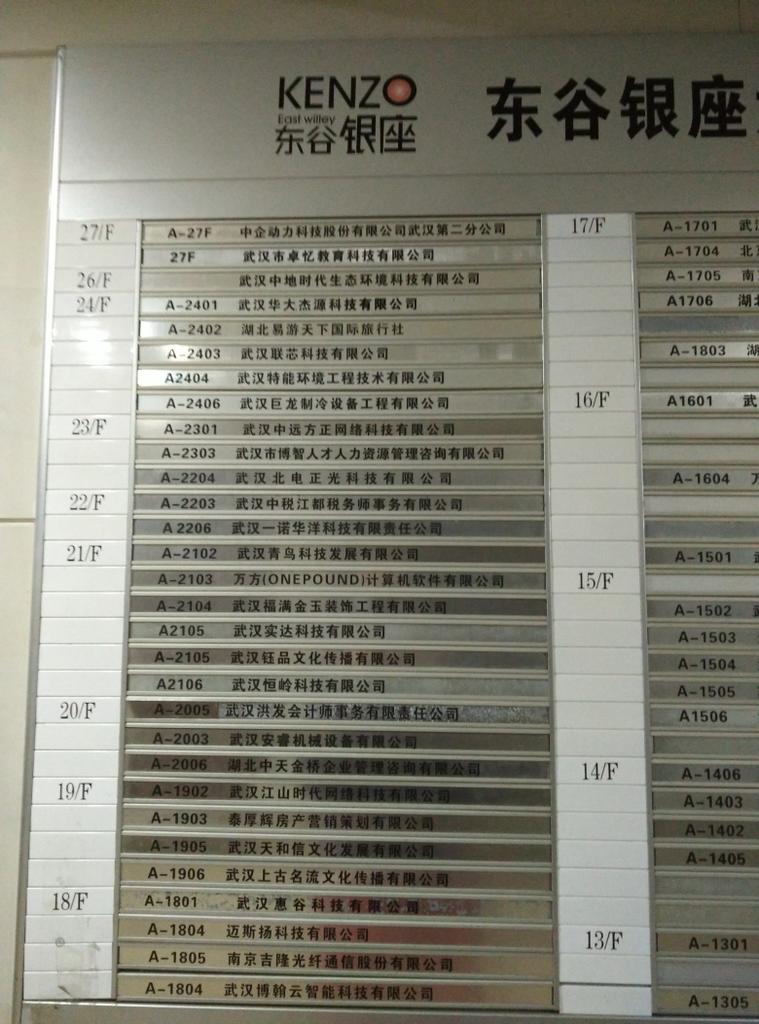 KENZO
East willey
东谷银座
东谷银座
27/F A-27F 中企动力科技股份有限公司武汉第二分公司
27F 武汉市卓忆教育科技有限公司
26/F 武汉中地时代生态环境科技有限公司
24/F A-2401 武汉华大杰源科技有限公司
A-2402 湖北易游天下国际旅行社
A-2403 武汉联芯科技有限公司
A2404 武汉特能环境工程技术有限公司
A-2406 武汉巨龙制冷设备工程有限公司
23/F A-2301 武汉中远方正网络科技有限公司
A-2303 武汉市博智人才人力资源管理咨询有限公司
A-2204 武汉北电正光科技有限公司
22/F A-2203 武汉中税江都税务师事务有限公司
A 2206 武汉一诺华洋科技有限责任公司
21/F A-2102 武汉青鸟科技发展有限公司
A-2103 万方(ONEPOUND)计算机软件有限公司
A-2104 武汉福满金玉装饰工程有限公司
A2105 武汉实达科技有限公司
A-2105 武汉钰品文化传播有限公司
A2106 武汉恒岭科技有限公司
20/F A-2005 武汉洪发会计师事务有限责任公司
A-2003 武汉安睿机械设备有限公司
A-2006 湖北中天金桥企业管理咨询有限公司
19/F A-1902 武汉江山时代网络科技有限公司
A-1903 泰厚辉房产营销策划有限公司
A-1905 武汉天和信文化发展有限公司
A-1906 武汉上古名流文化传播有限公司
18/F A-1801 武汉惠谷科技有限公司
A-1804 迈斯扬科技有限公司
A-1805 南京吉隆光纤通信股份有限公司
A-1804 武汉博翰云智能科技有限公司
17/F A-1701 武
A-1704 北
A-1705 南
A1706 湖
A-1803 湖
16/F A1601 武
A-1604 万
A-1501
15/F
A-1502
A-1503
A-1504
A-1505
A1506
14/F A-1406
A-1403
A-1402
A-1405
13/F A-1301
A-1305